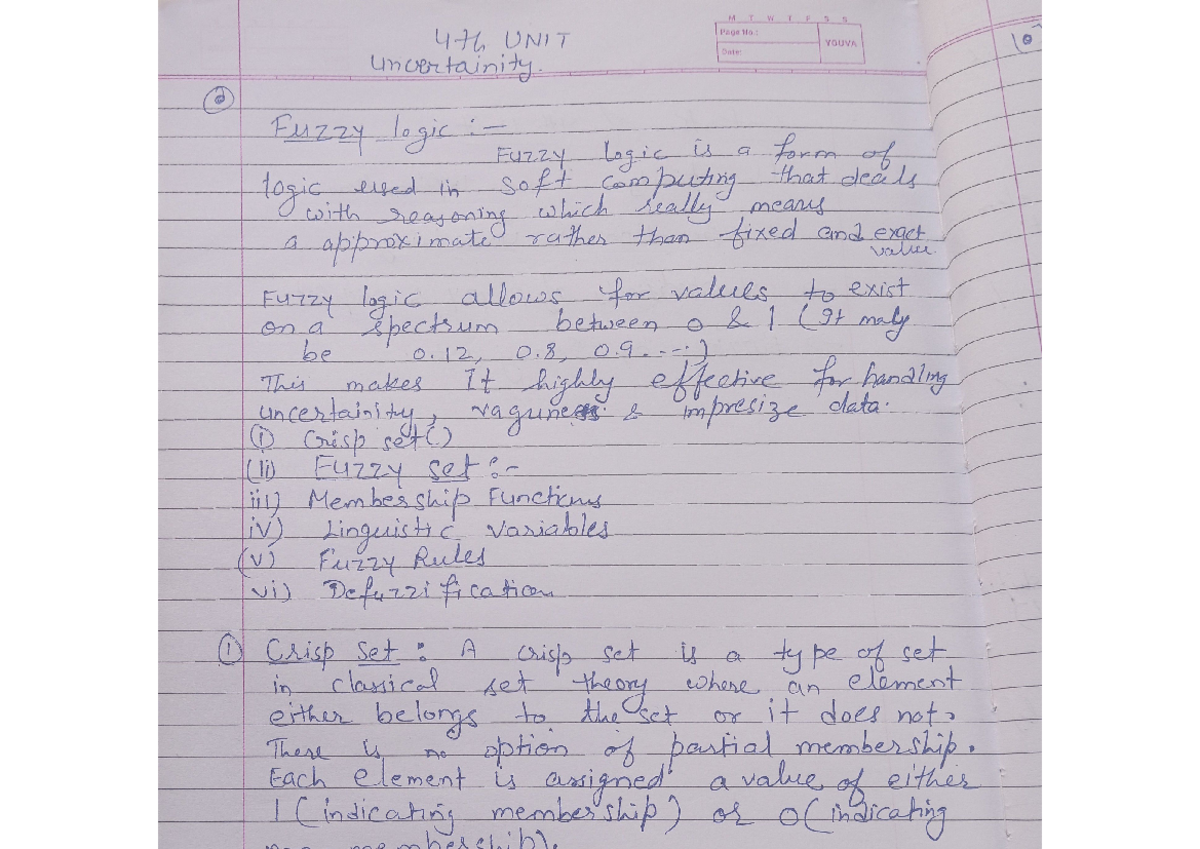 4th UNIT
Uncertainity.
M T W T F S S
Page No.:
YOUVA
Date:
10
Fuzzy logic :-
Fuzzy logic is a form of
logic used in soft computing that deals
with reasoning which really means
a approximate rather than fixed and exact
value.
Fuzzy logic allows for values to exist
on a spectrum between 0 & 1 (It maly
be 0.12, 0.8, 0.9....)
This makes It highly effective for handling
uncertainity, vaguness & impresize data.
(i) Crisp set()
(ii) Fuzzy set :-
iii) Membership Functions
iv) Linguistic variables
(v) Fuzzy Rules
vi) Defuzzification
① Crisp set : A crisp set is a type of set
in classical set theory where an element
either belongs to the set or it does not.
There is no option of partial membership.
Each element is assigned a value of either
1 (indicating membership) or 0 (indicating
non membership).